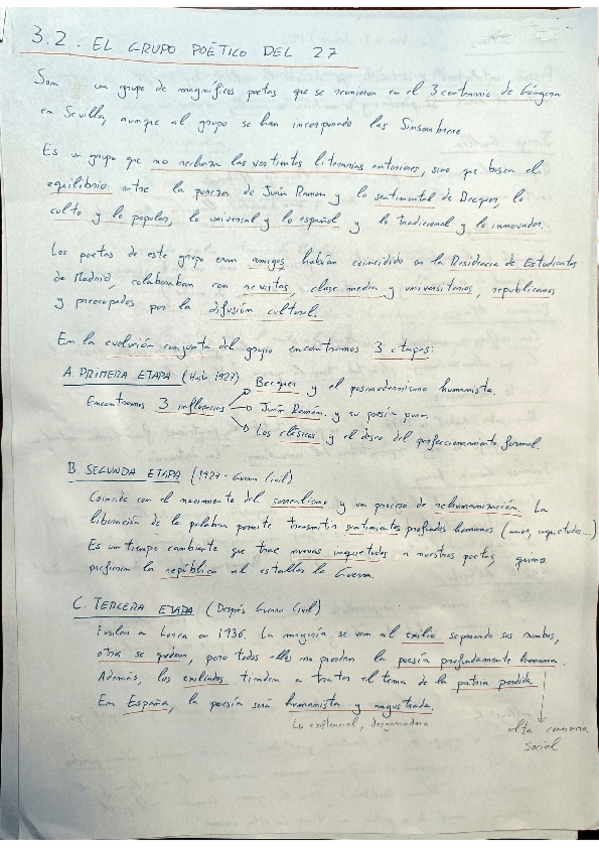 3.2. EL GRUPO POÉTICO DEL 27
Son un grupo de magníficos poetas que se reunieron en el 3 centenario de Góngora
en Sevilla, aunque al grupo se han incorporado las Sinsombrero.
Es un grupo que no rechaza las vertientes literarias anteriores, sino que buscan el
equilibrio entre la pureza de Juan Ramón y lo sentimental de Becquer, lo
culto y lo popular, lo universal y lo español y lo tradicional y lo innovador.
Los poetas de este grupo eran amigos, habían coincidido en la Residencia de Estudiantes
de Madrid, colaboraban con revistas, clase media y universitarios, republicanos
y preocupados por la difusión cultural.
En la evolución conjunta del grupo encontramos 3 etapas:
A. PRIMERA ETAPA (Hasta 1927)
Becquer y el posmodernismo humanista.
Encontramos 3 influencias
Juan Ramón y su poesía pura.
Los clásicos y el deseo del perfeccionamiento formal.
B. SEGUNDA ETAPA (1927 - Guerra Civil)
Coincide con el nacimiento del surrealismo y un proceso de rehumanización. La
liberación de la palabra permite transmitir sentimientos profundos humanos (amor, inquietudes...)
Es un tiempo cambiante que trae nuevas inquietudes a nuestros poetas, quienes
prefieren la república al estallar la Guerra.
C. TERCERA ETAPA (Después Guerra Civil)
Fusilan a Lorca en 1936. La mayoría se van al exilio separando sus rumbos,
otros se quedan, pero todos ellos no pierden la poesía profundamente humana.
Además, los exiliados tienden a tratar el tema de la patria perdida
En España, la poesía será humanista y angustiada.
existencial, desgarradora
alta conciencia
social